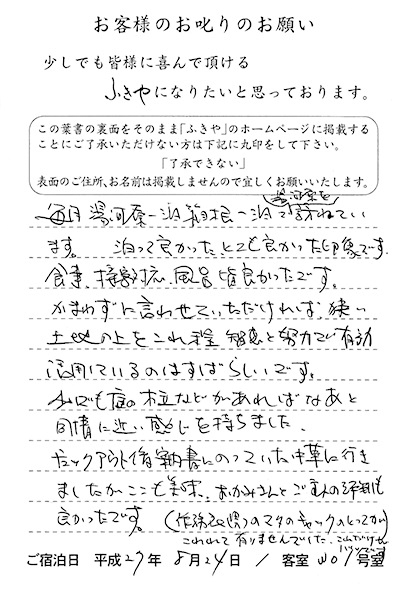 お客様のお叱りのお願い
少しでも皆様に喜んで頂ける
ふきやになりたいと思っております。
この葉書の裏面をそのまま「ふきや」のホームページに掲載する
ことにご了承いただけない方は下記に丸印をして下さい。
「了承できない」
表面のご住所、お名前は掲載しませんので宜しくお願いいたします。
湯河原を
毎月湯河原一泊箱根一泊で訪ねてい
ます。 泊って良かった、とても良かった印象です。
食事、接客対応、風呂皆良かったです。
かまわずに言わせていただければ、狭い
土地の上をこれ程知恵と努力で有効
活用しているのはすばらしいです。
少しでも庭の木立などがあればなあと
同情に近い感じを持ちました。
チェックアウト後案内書にのっていた中華に行き
ましたがここも美味、おかみさんとご主人の評判も
良かったです。
ご宿泊日 平成27年 8月24日 / 客室 号室